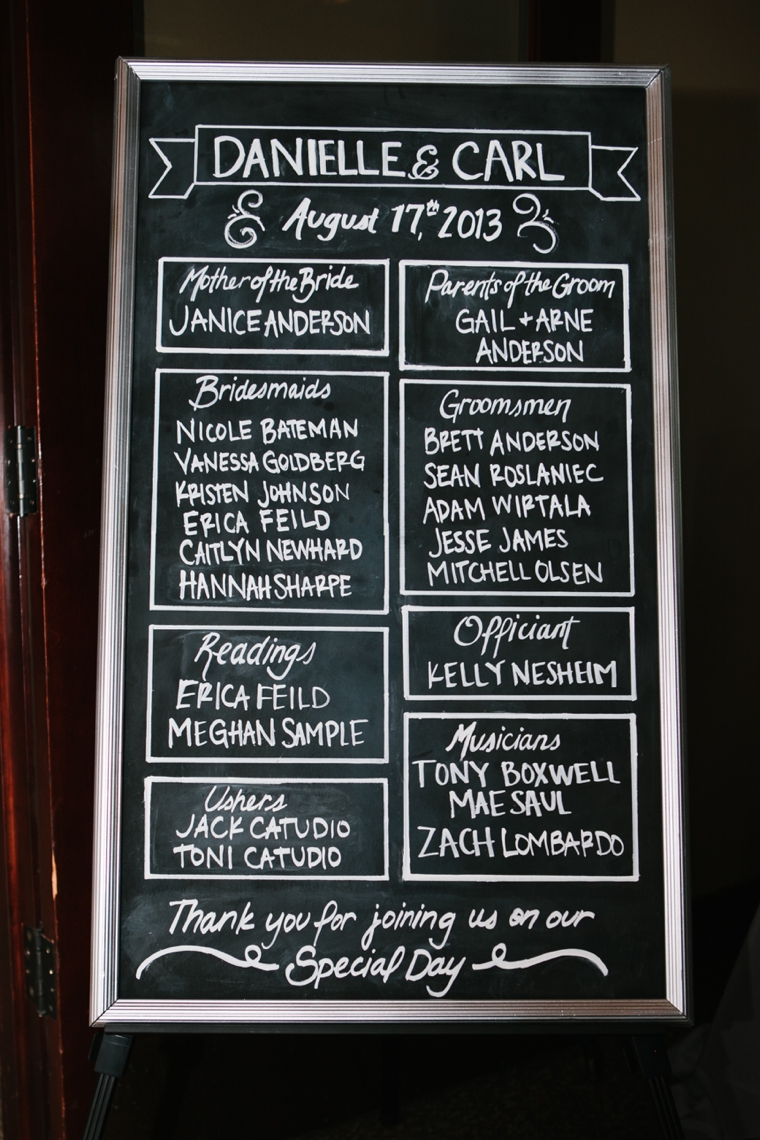 DANIELLE & CARL
August 17th, 2013
Mother of the Bride
JANICE ANDERSON
Parents of the Groom
GAIL + ARNE
ANDERSON
Bridesmaids
NICOLE BATEMAN
VANESSA GOLDBERG
KRISTEN JOHNSON
ERICA FEILD
CAITLYN NEWHARD
HANNAH SHARPE
Groomsmen
BRETT ANDERSON
SEAN ROSLANIEC
ADAM WIRTALA
JESSE JAMES
MITCHELL OLSEN
Readings
ERICA FEILD
MEGHAN SAMPLE
Officiant
KELLY NESHEIM
Ushers
JACK CATUDIO
TONI CATUDIO
Musicians
TONY BOXWELL
MAE SAUL
ZACH LOMBARDO
Thank you for joining us on our
Special Day